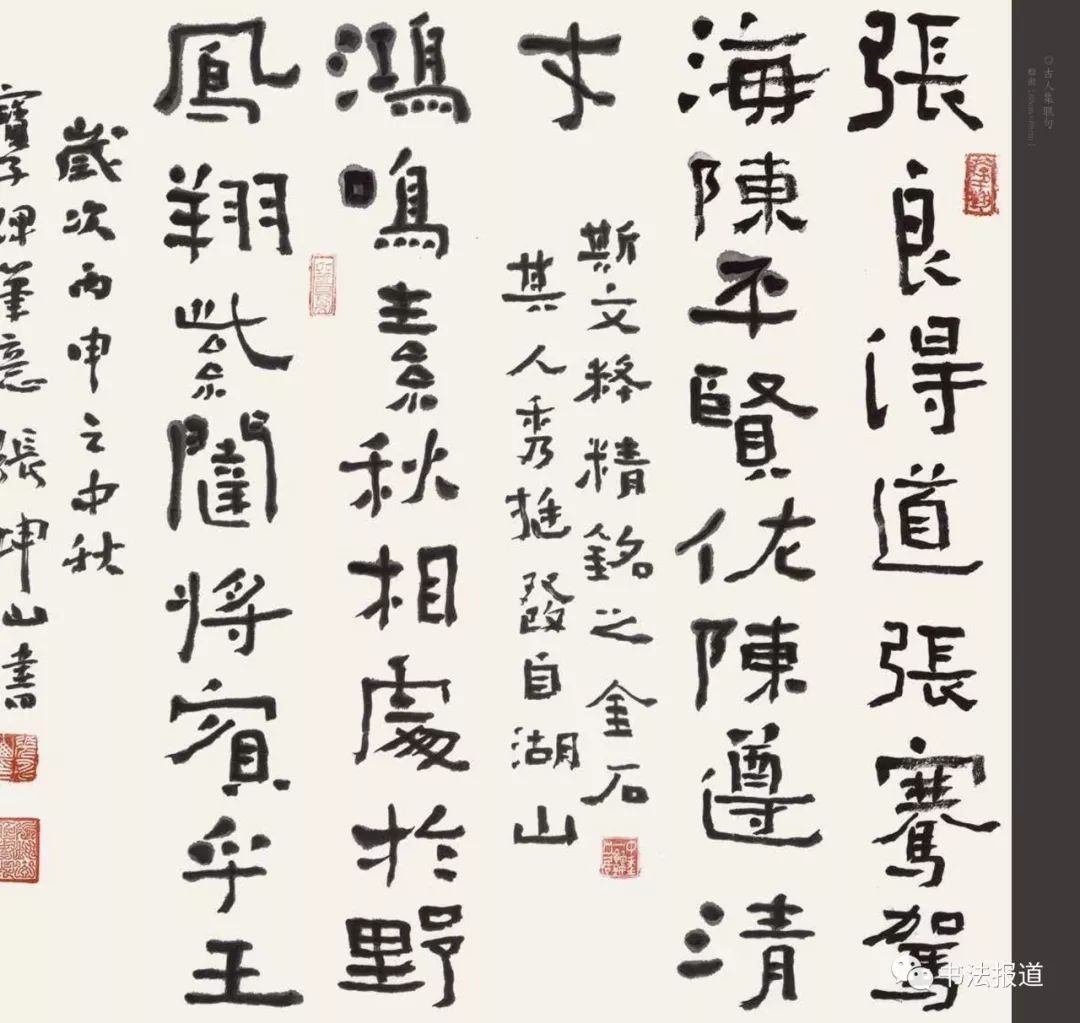 ◎古人集联句
張良得道張騫駕
海陳平賢佐陳遵清
才
斯文粹精銘之金石
其人秀挺發自湖山
鴻鳴素秋相處於野
鳳翔紫闥將賓乎王
歲次丙申之中秋
寶子碑筆意張坤山書
书法报道